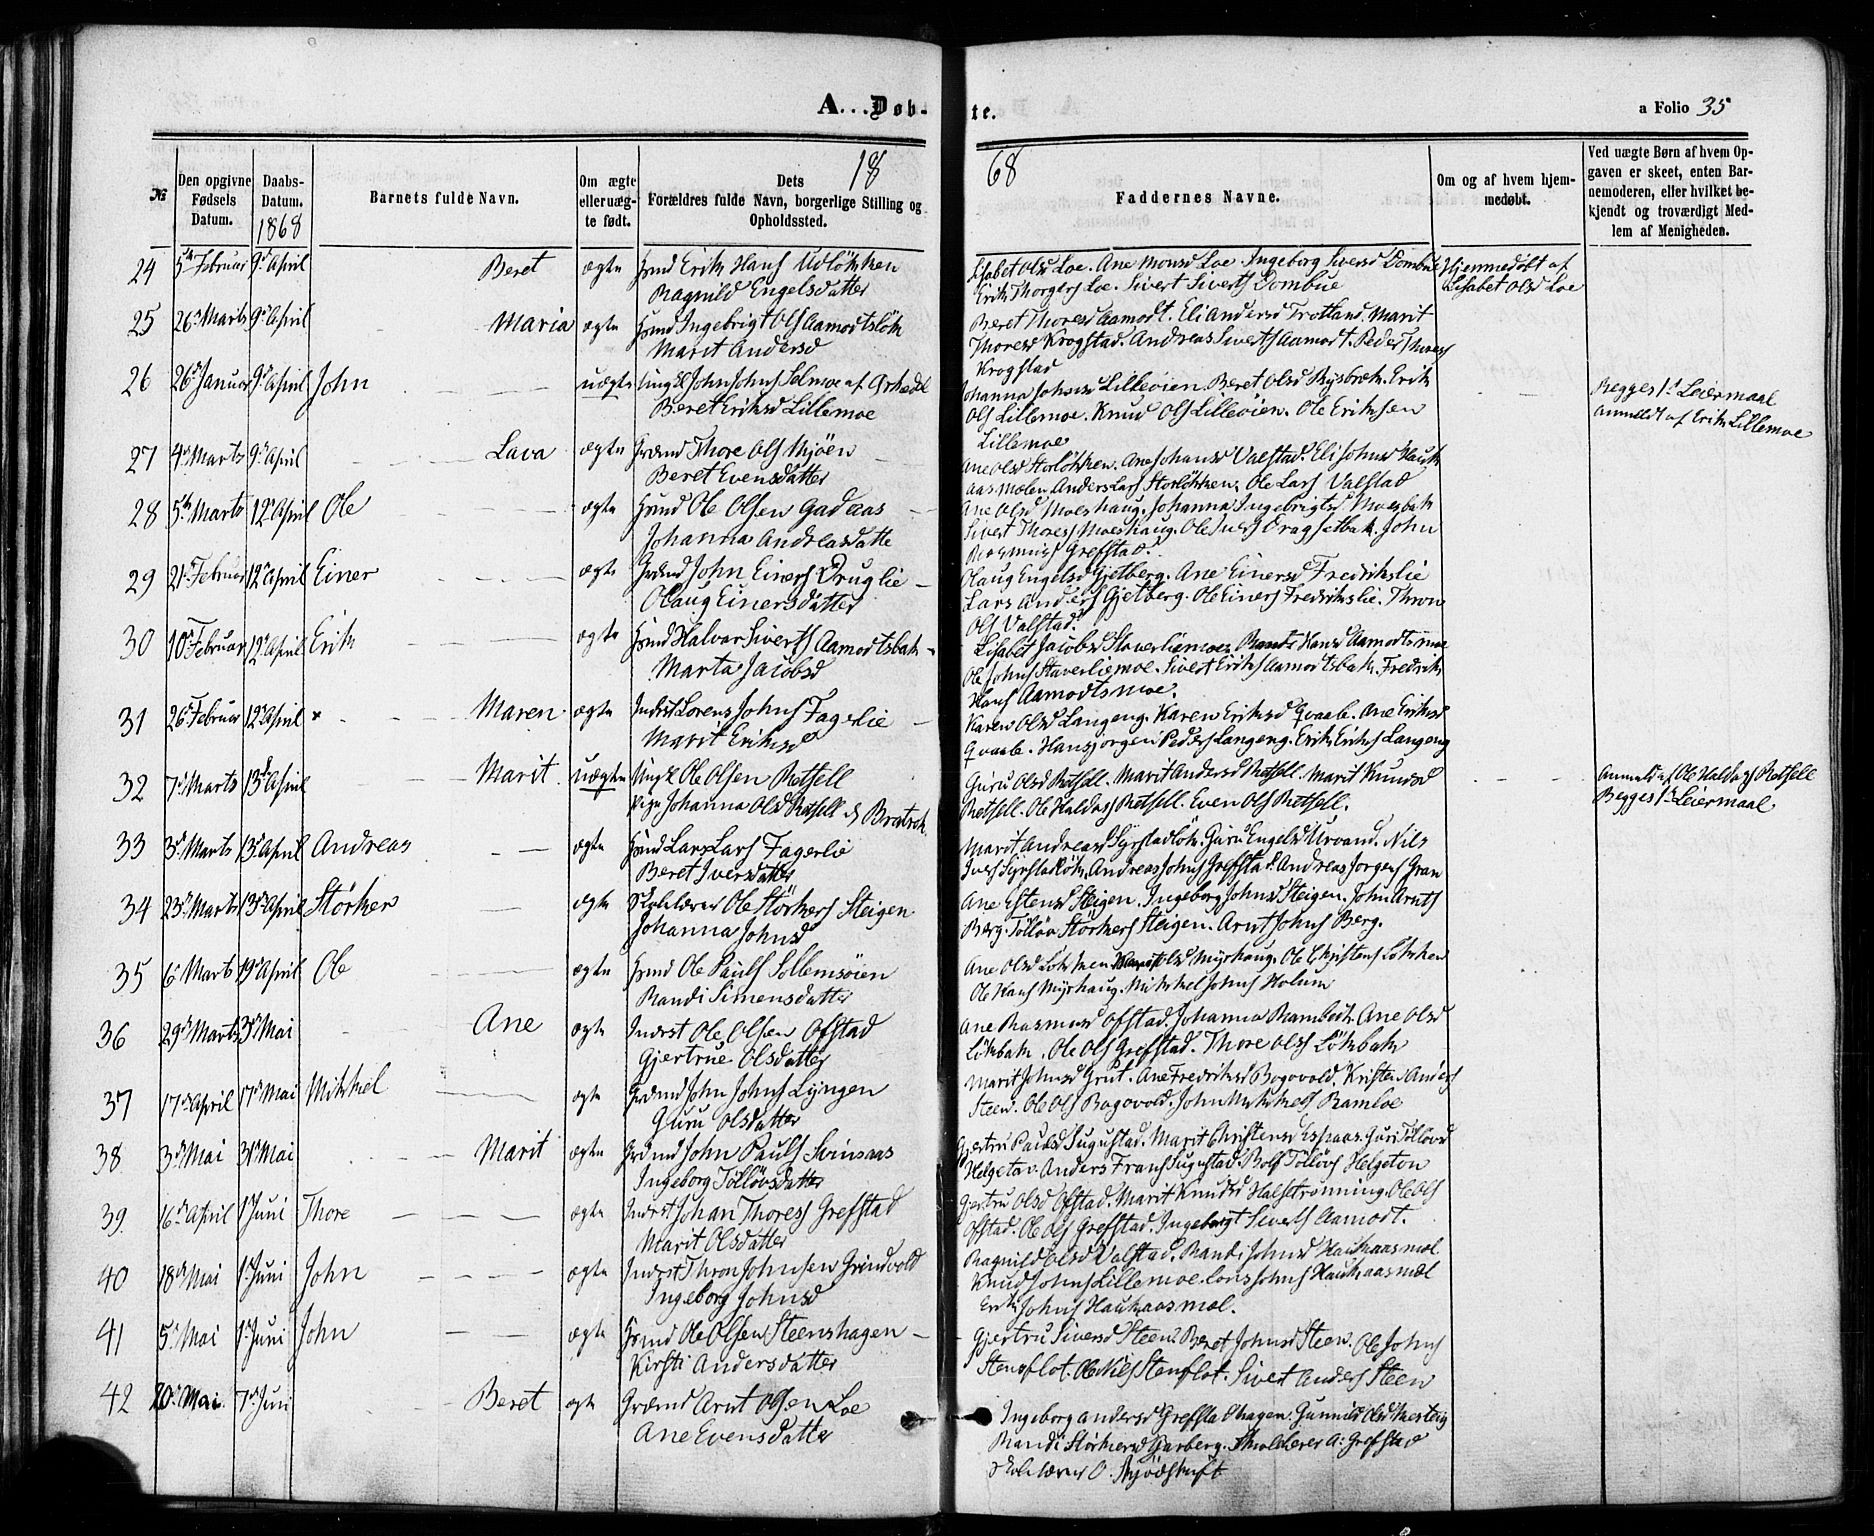 A... Døb-
te.
a Folio 35
18
68
№
Den opgivne Fødsels Datum.
Daabs-Datum. 1868
Barnets fulde Navn.
Om ægte eller uægte født.
Dets Forældres fulde Navn, borgerlige Stilling og Opholdssted.
Faddernes Navne.
Om og af hvem hjemmedøbt.
Ved uægte Børn af hvem Opgaven er skeet, enten Barnemoderen, eller hvilket bekjendt og troværdigt Medlem af Menigheden.
24 5te Februar 9de April Beret ægte Erik Hans Udløkken
Ragnild Engelsdatter
Lisabet Olsd Loe. Ane Monsd Loe. Ingeborg Siversd Dombue
Erik Thorgers Loe. Sivert Siverts Dombue
Hjemmedøbt af
Lisabet Olsd Loe
25 26 Marts 9 April Maria ægte Ingebrigt Ols Aamodtsløk
Marit Andersd
Beret Thoresd Aamodt. Eli Andersd Trotland. Marit
Thoresd Krogstad. Andreas Siverts Aamodt. Peder Thores
Krogstad
26 26 Januar 9 April John uægte Ungk John Johns Solmoe af
Beret Eriksd Lillemoe
Johanna Johnsd Lilleøien. Beret Olsd Rysbræk. Erik
Ols Lillemoe. Knud Ols Lilleøien. Ole Eriksen
Lillemoe
Begges 1ste Leiermaal
anmeldt af Erik Lillemoe
27 4 Marts 9 April Lava ægte Thore Ols Mjøen
Beret Evensdatter
Ane Olsd Storløkken. Ane Johansd Valstad. Eli Johnsd Hauk
aasmælen Anders Lars Storløkken. Ole Lars Valstad
28 5te Marts 12 April Ole ægte Ole Olsen Gadaas
Johanna Andreasdatte
Ane Olsd Moeshaug. Johanna Ingebrigtsd Moesbak
Sivert Thores Moeshaug. Ole Ivers Dragsetbak. John
Grefstad.
29 21 Februar 12 April Einer ægte John Einers Druglie
Olaug Einersdatter
Olaug Engelsd Gjetberg. Ane Einersd Fredrikslie
Lars Anders Gjetberg. Ole Einers Fredrikslie. Thron
Ols Valstad.
30 10 Februar 12 April Erik ægte Halvar Siverts Aamodtsbak
Marta Jacobsd
Lisabet Jacobsd Staverliemoe. Hansd Aamodtsmoe
Ole Johns Staverliemoe. Sivert Eriks Aamodtsbak. Fredrik
Hans Aamodtsmoe.
31 26 Februar 12 April Maren ægte Inderst Lorens Johns Fagerlie
Marit Eriksd
Karen Olsd Langeng. Karen Eriksd Qvaale. Ane Eriksd
Qvaale. Hans Jorgen Peders Langeng. Erik Eriks Langeng
32 7 Marts 13 April Marit uægte Ungk Ole Olsen Retsell
Pige Johanna Olsd Retsell
Guru Olsd Retsell. Marit Andersd Retsell. Marit Knudsd
Retsell. Ole Haldos Retsell. Even Ols Retsell.
Anmeldt af Ole Haldos Retsell
Begges 1ste Leiermaal
33 3 Marts 13 April Andreas ægte Lars Lars Fagerlie
Beret Iversdatter
Marit Andreasd Syrstadløk. Guru Engelsd Urvand. Nils
Ivers Syrstadløk. Andreas Johns Grefstad. Andreas Jorgens Gran
34 23 Marts 13 April Størker ægte Skolelærer Ole Størkers Steigen
Johanna Johnsd
Ane Estensd Steigen. Ingeborg Johnsd Steigen. John Arnts
Berg. Tølløv Størkers Steigen. Arnt Johns Berg.
35 6 Marts 19 April Ole ægte Ole Pauls Sollemsøien
Randi Simensdatter
Ane Olsd Løkken Olsd Myrhaug. Ole Christens Løkken
Ole Hans Myrhaug. Mikkel Johns Holum
36 29 Marts 3 Mai Ane ægte Inderst Ole Olsen Ofstad
Gjertrue Olsdatter
Ane Rasmusd Ofstad. Johanna Ane Olsd
Løkbak. Ole Ols Grefstad. Thore Ols Løkbak
37 17 April 17 Mai Mikkel ægte John Johns Lyngen
Guru Olsdatter
Marit Johnsd Grut. Ane Fredriksd Bogovold. Kristen Anders
Steen. Ole Ols Bogovold. John Mikkels Ramloe
38 3 Mai 31 Mai Marit ægte John Pauls Svinsaas
Ingeborg Tølløvsdatter
Gjertru Paulsd Sugustad. Marit Christensd Espaas. Guri Tølløvsd
Helgeton. Anders Frans Sugustad. Rolf Tølløvs Helgeton
39 6 April 1 Juni Thore ægte Inderst Johan Thores Grefstad
Marit Olsdatter
Gjertru Olsd Ofstad. Marit Knudsd Halsetrønning. Ole Ols
Ofstad. Ole Ols Grefstad. Ingebrigt Siverts Aamodt.
40 18 Mai 1 Juni John ægte Inderst Thron Johnsen Grindvold
Ingeborg Johnsd
Ragnild Olsd Valstad. Randi Johnsd Haukaasmæl
Knud Johns Lillemoe. Johns Haukaasmæl
Erik Johns Haukaasmæl.
41 5 Mai 1 Juni John ægte Ole Olsen Steenshagen
Kirsti Andersdatter
Gjertru Siversd Steen. Beret Johnsd Steen. Ole Johns
Stensflot. Ole Nils Stenflot. Sivert Anders Steen
42 20 Mai 7 Juni Beret ægte Arnt Olsen Loe
Ane Evensdatter
Ingeborg Andersd Grefstadhagen. Gunnild Olsd
Randi Størkersd Garberg. Skolelærer A: Grefstad
Skolelærer O. Skjødskift